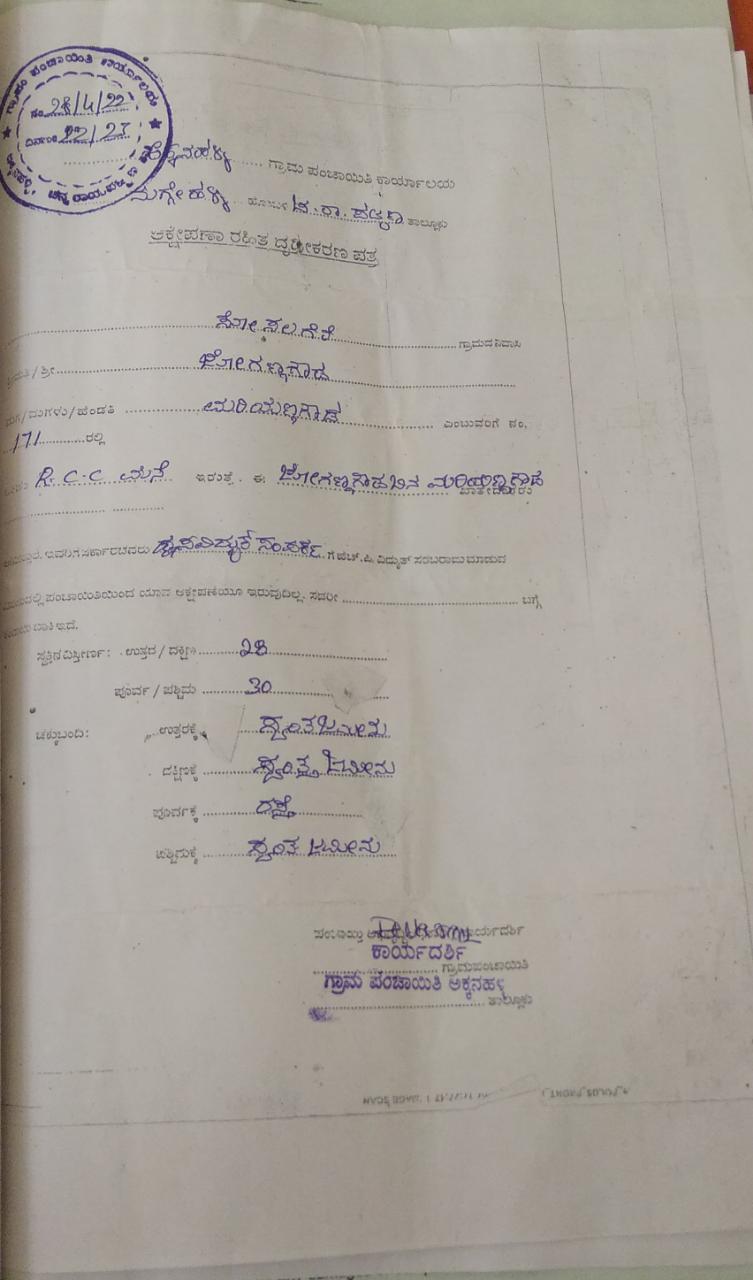 ಗ್ರಾಮ ಪಂಚಾಯಿತಿ ಕಾರ್ಯಾಲಯ
ನಂ. 28/4/22
ದಿನಾಂಕ 22/23
ಅಕ್ಕನಹಳ್ಳಿ ...... ಗ್ರಾಮ ಪಂಚಾಯಿತಿ ಕಾರ್ಯಾಲಯ
ನುಗ್ಗೇಹಳ್ಳಿ ಹೋಬಳಿ ಚ.ರಾ. ಪಟ್ಟಣ ತಾಲ್ಲೂಕು
ಆಕ್ಷೇಪಣಾ ರಹಿತ ದೃಢೀಕರಣ ಪತ್ರ
ಸೋಸಲಗೆರೆ ಗ್ರಾಮದ ನಿವಾಸಿ
ಶ್ರೀಮತಿ / ಶ್ರೀ ಜೋಗಣ್ಣಗೌಡ
ಮಗ/ಮಗಳು/ಹೆಂಡತಿ ಮರಿಯಣ್ಣಗೌಡ ಎಂಬುವರಿಗೆ ನಂ.
171 ರಲ್ಲಿ
R.C.C ಮನೆ ಇರುತ್ತೆ. ಈ ಜೋಗಣ್ಣಗೌಡ ಬಿನ ಮರಿಯಣ್ಣಗೌಡ ಖಾತೇದಾರರು
ಇವರಿಗೆ ಸಂಪರ್ಕ ಗೆ ಹೆಚ್.ಪಿ. ವಿದ್ಯುತ್ ಸರಬರಾಜು ಮಾಡುವ
ಪಂಚಾಯಿತಿಯಿಂದ ಯಾವ ಆಕ್ಷೇಪಣೆಯೂ ಇರುವುದಿಲ್ಲ. ಸದರೀ ಬಗ್ಗೆ
ಬಾಕಿ ಇದೆ.
ಸ್ವತ್ತಿನ ವಿಸ್ತೀರ್ಣ: ಉತ್ತರ / ದಕ್ಷಿಣ 28
ಪೂರ್ವ / ಪಶ್ಚಿಮ 30
ಚಕ್ಕುಬಂದಿ: ಉತ್ತರಕ್ಕೆ ಸ್ವಂತ ಜಮೀನು
ದಕ್ಷಿಣಕ್ಕೆ ಸ್ವಂತ ಜಮೀನು
ಪೂರ್ವಕ್ಕೆ ರಸ್ತೆ
ಪಶ್ಚಿಮಕ್ಕೆ ಸ್ವಂತ ಜಮೀನು
ಕಾರ್ಯದರ್ಶಿ
ಕಾರ್ಯದರ್ಶಿ
ಗ್ರಾಮಪಂಚಾಯಿತಿ
ಗ್ರಾಮ ಪಂಚಾಯಿತಿ ಅಕ್ಕನಹಳ್ಳಿ
ತಾಲ್ಲೂಕು